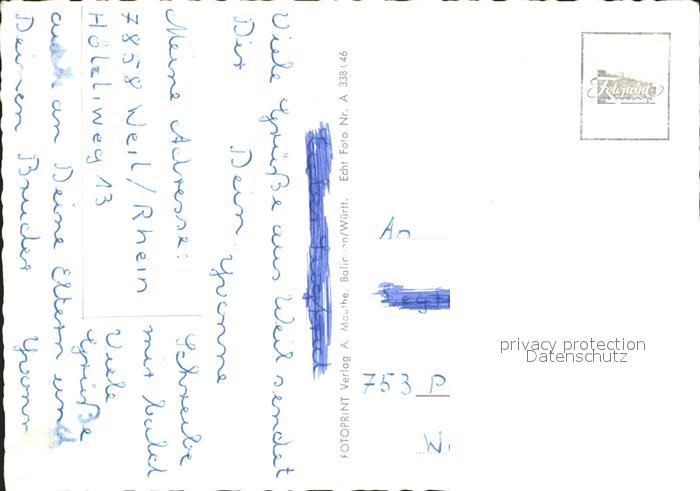 Viele Grüße aus Weil sendet
Dir
Dein Yvonne
Meine Adresse:
7858 Weil/Rhein
Hölzliweg 13
Schreibe
mir bald
Viele
Grüße
auch an Deine Eltern und
Deinen Bruder Yvonn
FOTOPRINT Verlag A. Mauthe, Balingen/Württ. Echt Foto Nr. A 338/46
Fotoprint
An
753 P
W.
privacy protection
Datenschutz